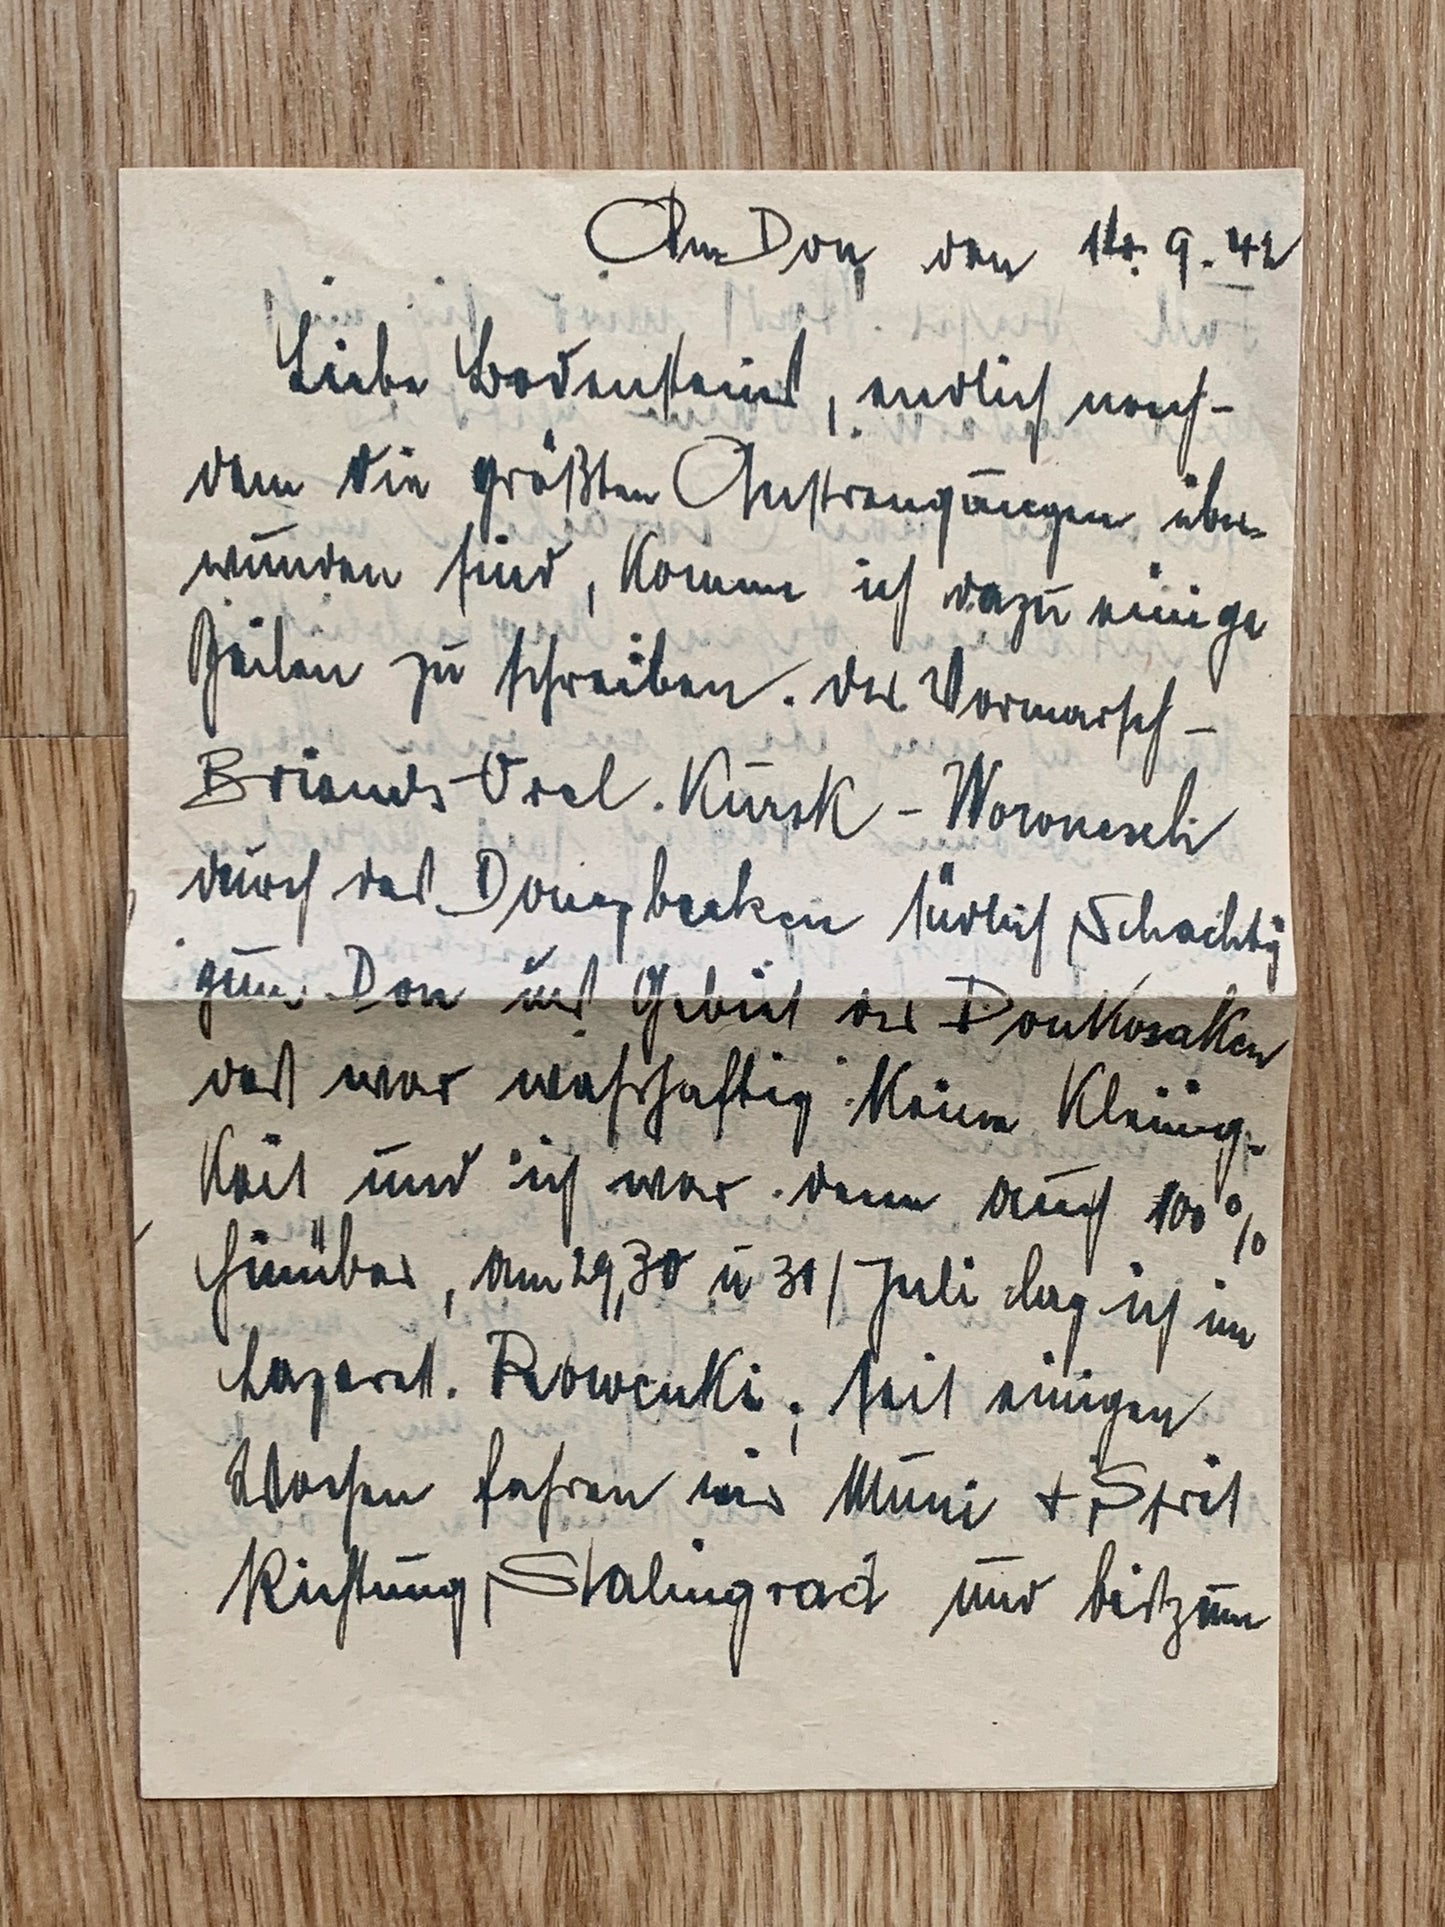 Am Don, den 14. 9. 42
Liebe Bodensteins, endlich nach-
dem die größten Anstrengungen über-
wunden sind, komme ich dazu einige
Zeilen zu schreiben. Der Vormarsch -
Orel. Kursk - Woronesch
durch das Donezbecken südlich Schachty
zum Don ins Gebiet der Donkosaken
das war wahrhaftig keine Kleinig-
keit und ich war denn auch 100%
hinüber, am 29, 30 u 31/ Juli lag ich im
Lazarett. Rowenki; seit einigen
Wochen fahren wir Muni + Sprit
Richtung Stalingrad und bis zum